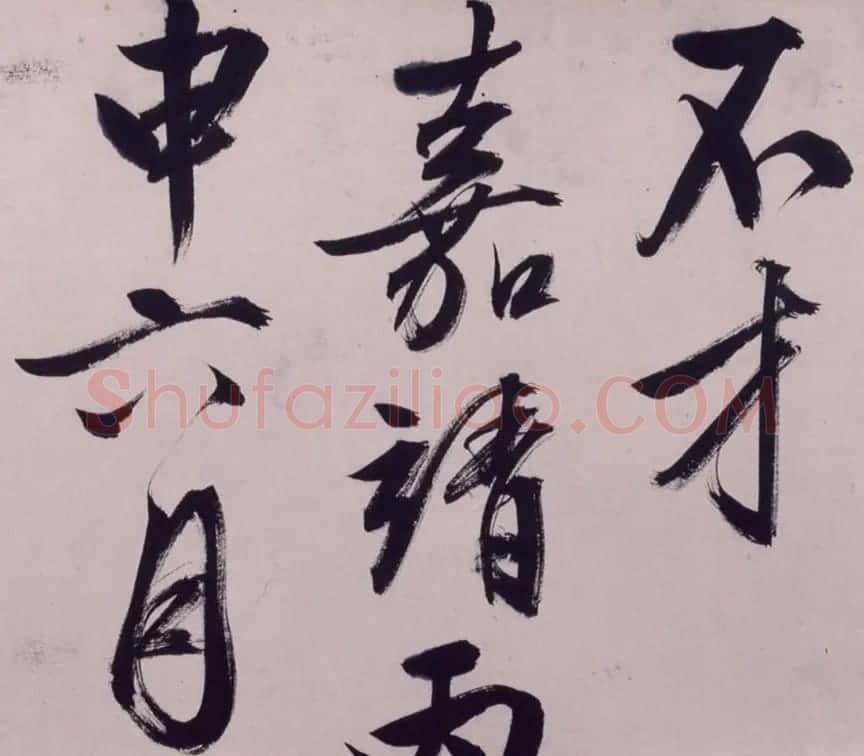 不才
嘉靖丙
申六月
Shufaziliao.COM